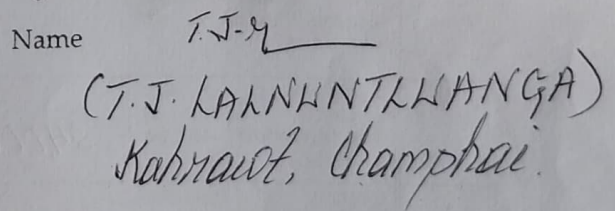 Name T.J.
(T.J. LALNUNTLUANGA)
Kahrawt, Champhai.